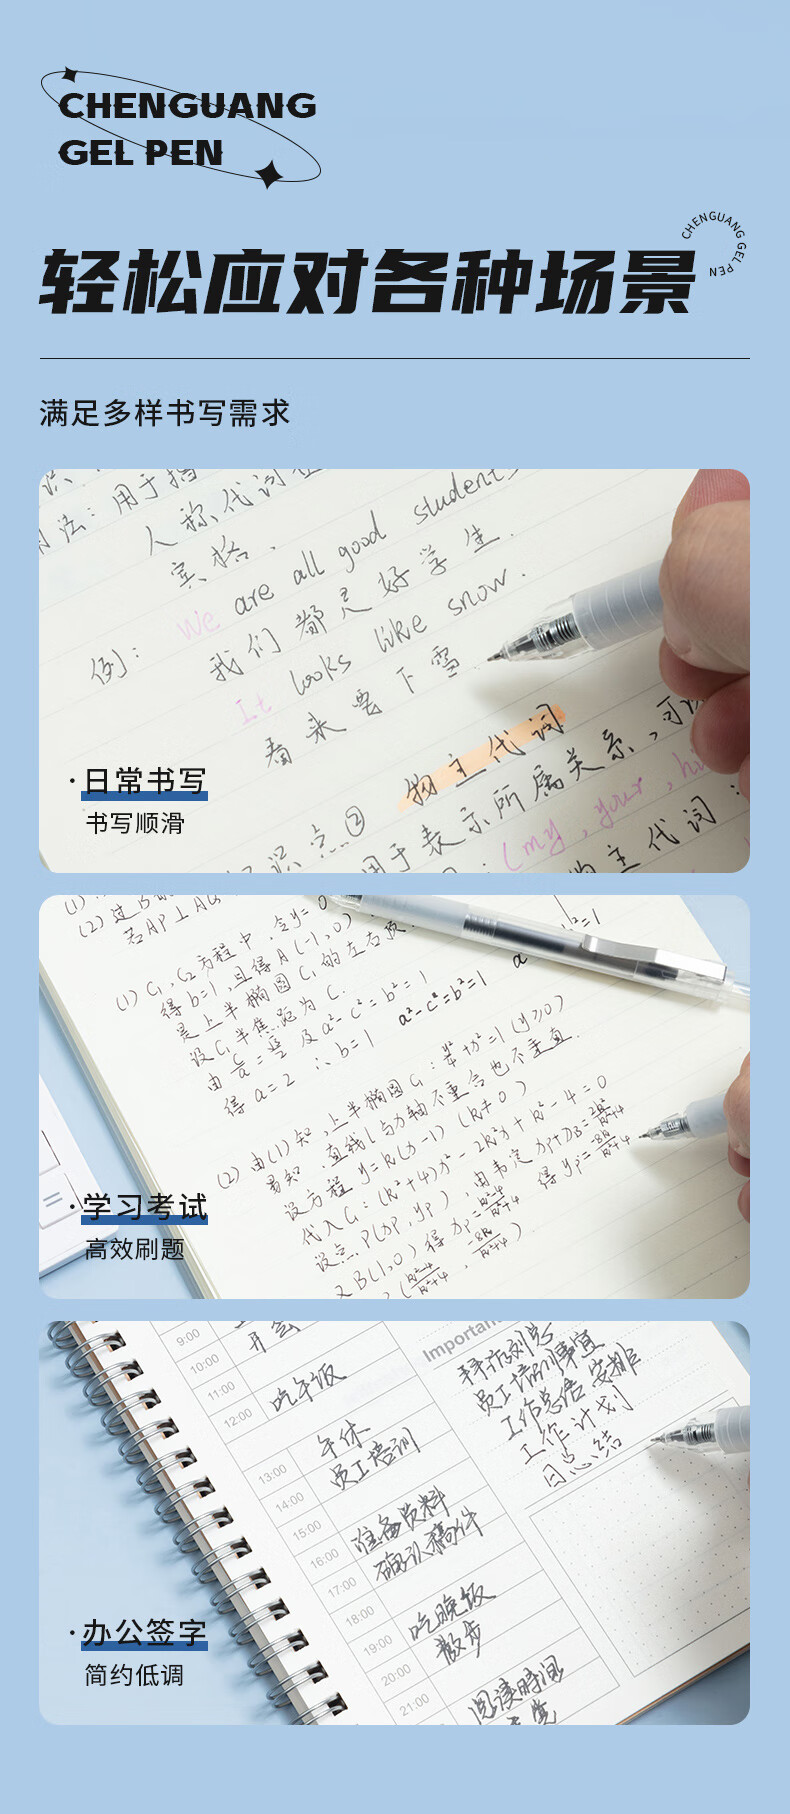 CHENGUANG
GEL PEN
CHENGUANG GEL PEN
轻松应对各种场景
满足多样书写需求
用于指
人称代词
宾格.
We are all good student
我们都是好学生.
例:
It looks like snow.
看来要下雪
物主代词
知识点②
用于表示所属关系,可以
(my, your, hi
物主代词:
·日常书写
书写顺滑
(1)
(2) 过
若AP⊥AQ
(1) C₁, C₂方程中,令y=0
得b=1,且得A(-1,0)
是上半椭圆C₁的左右顶
设C₁半焦距为C.
及a²-c²=b²=1
得a=2 ∴b=1 a²-c²=b²=1
(2) 由(1)知,上半椭圆C₁: +x²=1 (y≥0)
易知,直线l与x轴不重合也不垂直.
设方程y=k(x-1) (k≠0)
代入C₁: (k²+4)x²-2k²x+k²-4=0
设点P(xp, yp)
又B(1,0)
·学习考试
高效刷题
9:00
10:00
11:00
12:00
13:00
14:00
15:00
16:00
17:00
18:00
19:00
20:00
21:00
开会
吃午饭
午休
员工培训
准备资料
确认稿件
吃晚饭
散步
阅读时间
Important
员工培训事宜
工作总结安排
工作计划
日总结
·办公签字
简约低调